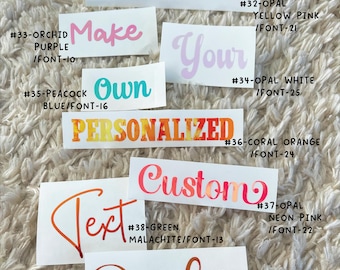 #32-OPAL
YELLOW PINK
/FONT-21
Make
#33-ORCHID
PURPLE
/FONT-10
Your
#34-OPAL WHITE
/FONT-25
Own
#35-PEACOCK
BLUE/FONT-16
PERSONALIZED
#36-CORAL ORANGE
/FONT-24
Custom
#37-OPAL
NEON PINK
/FONT-22
Text
#38-GREEN
MALACHITE/FONT-13